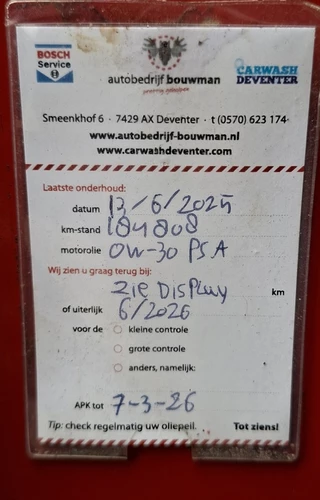 BOSCH
Service
autobedrijf bouwman
CARWASH
DEVENTER
Smeenkhof 6 · 7429 AX Deventer · t (0570) 623 174
www.autobedrijf-bouwman.nl
www.carwashdeventer.com
Laatste onderhoud:
datum 13/6/2025
km-stand 184808
motorolie 0W-30 PSA
Wij zien u graag terug bij:
zie Display km
of uiterlijk 6/2026
voor de kleine controle
grote controle
anders, namelijk:
APK tot 7-3-26
Tip: check regelmatig uw oliepeil. Tot ziens!